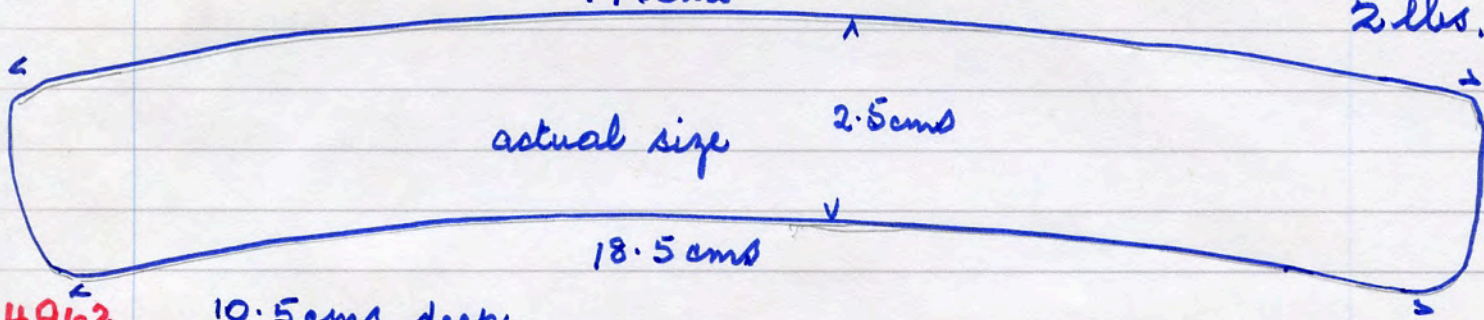 2 lbs.
actual size 2.5cms
18.5 cms
10.5cms